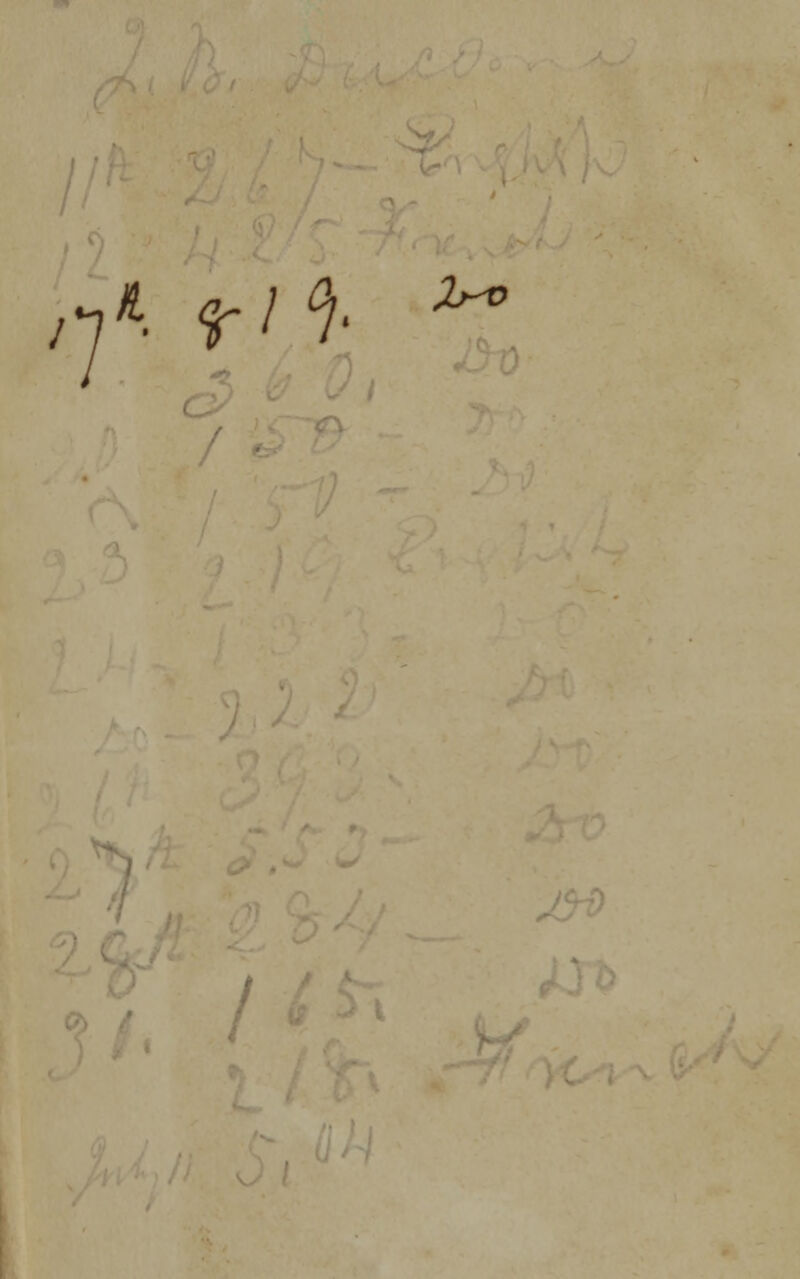 J. B. Ducoms
11th 267 - English
12 425 French
17th. 819. Do
360, Do
20 150 - Do
150 - Do
23 219 English
24 - 133 - Do
Do - 222 Do
26th 393. Do
27th 553 - Do
28th 284 - Do
31. 165. Do
218. French
July 11 504